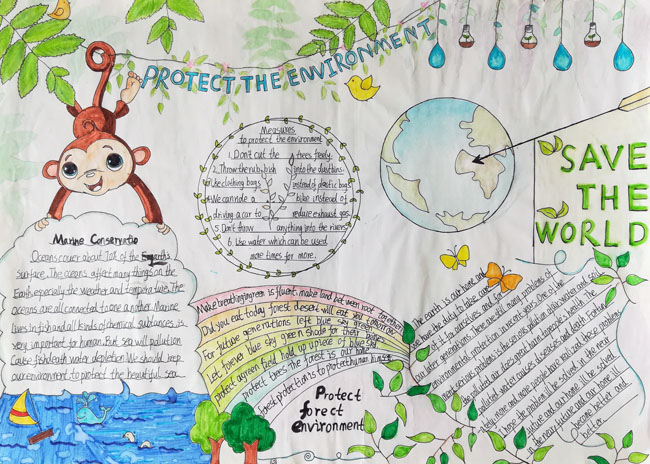 PROTECT THE ENVIRONMENT
Measures
to protect the environment
1. Don't cut the trees freely
2. Throw the rubbish into the dustbins
3. Use clothing bags instead of plastic bags
4. We can ride a bike instead of
driving a car to reduce exhaust gas.
5. Don't throw anything into the rivers
6. Use water which can be used
more times for more.
SAVE
THE
WORLD
Marine Conservatio
Oceans cover about 70% of the Earth's
surface. The oceans affect many things on the
Earth, especially the weather and temperature. The
oceans are all connected to one another. Marine
lives in fish and all kinds of chemical substances, is
very important for human. But sea will pollution
Cause fish death water depletion. We should keep
our environment to protect the beautiful sea
Make breathing green is fluent, make land between root
Did you eat today forest desert will eat soil tomorrow
For future generations left blue sky green
Let forever blue sky green shade for
protect a green field hold up a piece of blue sky
protect trees, the forest is our home
forest protection is to protect human
Protect
forect
environment
The earth is our home and
we have the duty to take care
of it for ourselves and for
our later generations. There are still many problems of
environmental protection in recent years. One of the
most serious problems is the serious pollution of air, water and soil.
the polluted air does great harm to people's health. The
polluted water causes diseases and death. Fortuna
tely, more and more people have realized these problems
I hope the problem the solved in the near
future and our home ill the solved
in the near future and our home ill
become better and
better